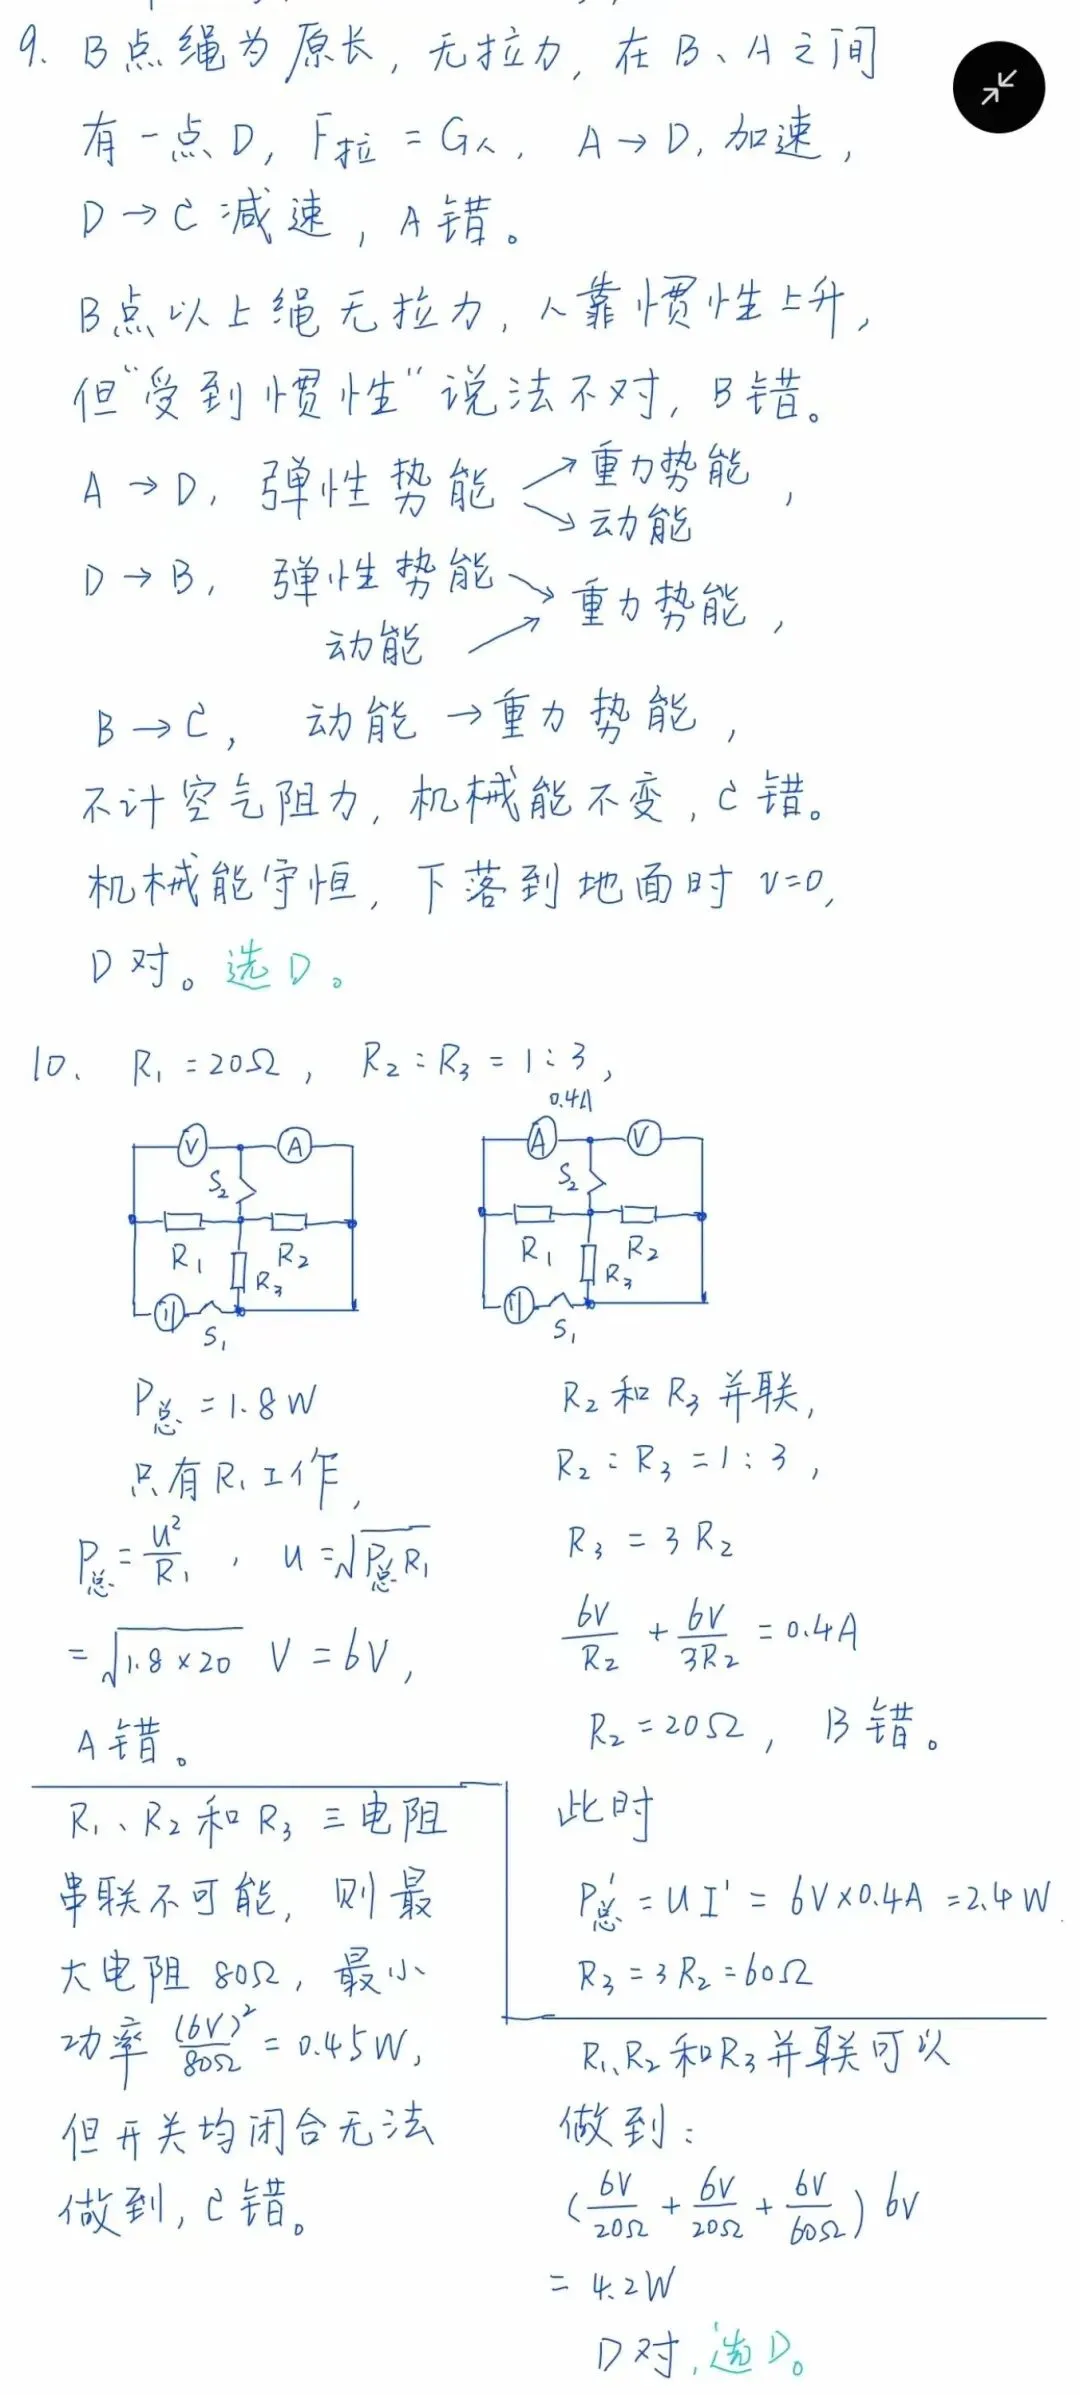 9. B点绳为原长，无拉力，在B、A之间
有一点D，F拉=G人，A→D，加速，
D→C减速，A错。
B点以上绳无拉力，人靠惯性上升，
但“受到惯性”说法不对，B错。
A→D，弹性势能→重力势能
→动能，
D→B，弹性势能→重力势能，
动能→
B→C，动能→重力势能，
不计空气阻力，机械能不变，C错。
机械能守恒，下落到地面时v=0，
D对。选D。
10、R₁=20Ω，R₂:R₃=1:3，
V A
S₂
R₁ R₂
R₃
S₁
0.4A
A V
S₂
R₁ R₂
R₃
S₁
P总=1.8W
只有R₁工作，
P总=U²/R₁，U=√(P总R₁)
=√(1.8×20) V=6V，
A错。
R₂和R₃并联，
R₂:R₃=1:3，
R₃=3R₂
6V/R₂+6V/3R₂=0.4A
R₂=20Ω，B错。
此时
P总'=UI'=6V×0.4A=2.4W
R₃=3R₂=60Ω
R₁、R₂和R₃三电阻
串联不可能，则最
大电阻80Ω，最小
功率(6V)²/80Ω=0.45W，
但开关均闭合无法
做到，C错。
R₁、R₂和R₃并联可以
做到：
(6V/20Ω+6V/20Ω+6V/60Ω)6V
=4.2W
D对，选D。